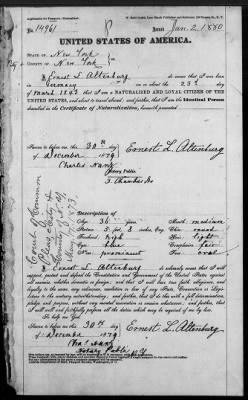 No. 14961
Issued Jan. 2, 1880
UNITED STATES OF AMERICA.
STATE OF New York
COUNTY OF New York
I, Ernest L. Altenburg do swear that I was born
in Germany on or about the 23d day
of March 1843, that I am a NATURALIZED AND LOYAL CITIZEN OF THE
UNITED STATES, and about to travel abroad; and further, that I am the Identical Person
described in the Certificate of Naturalization, herewith presented.
Sworn to before me this 30th day
of December 1879
Ernest L. Altenburg
Charles
Notary Public.
3. Chambers St
Court of Common
Pleas City &
County of N.Y.
Description of
Age: 36 years
Mouth: medium
Stature: 5 feet, 8 inches, Eng.
Chin: round
Forehead: high
Hair: light
Eyes: blue
Complexion: fair
Nose: prominent
Face: oval
I, Ernest L. Altenburg do solemnly swear that I will
support, protect and defend the Constitution and Government of the United States against
all enemies, whether domestic or foreign; and that I will bear true faith, allegiance, and
loyalty to the same, any ordinance, resolution or law of any State, Convention or Legis-
lature to the contrary notwithstanding; and further, that I do this with a full determination,
pledge and purpose, without any mental reservation or evasion whatsoever; and further, that
I will well and faithfully perform all the duties which may be required of me by law.
So help me God.
Sworn to before me this 30th day
of December 1879
Ernest L. Altenburg
Notary Public N.Y.